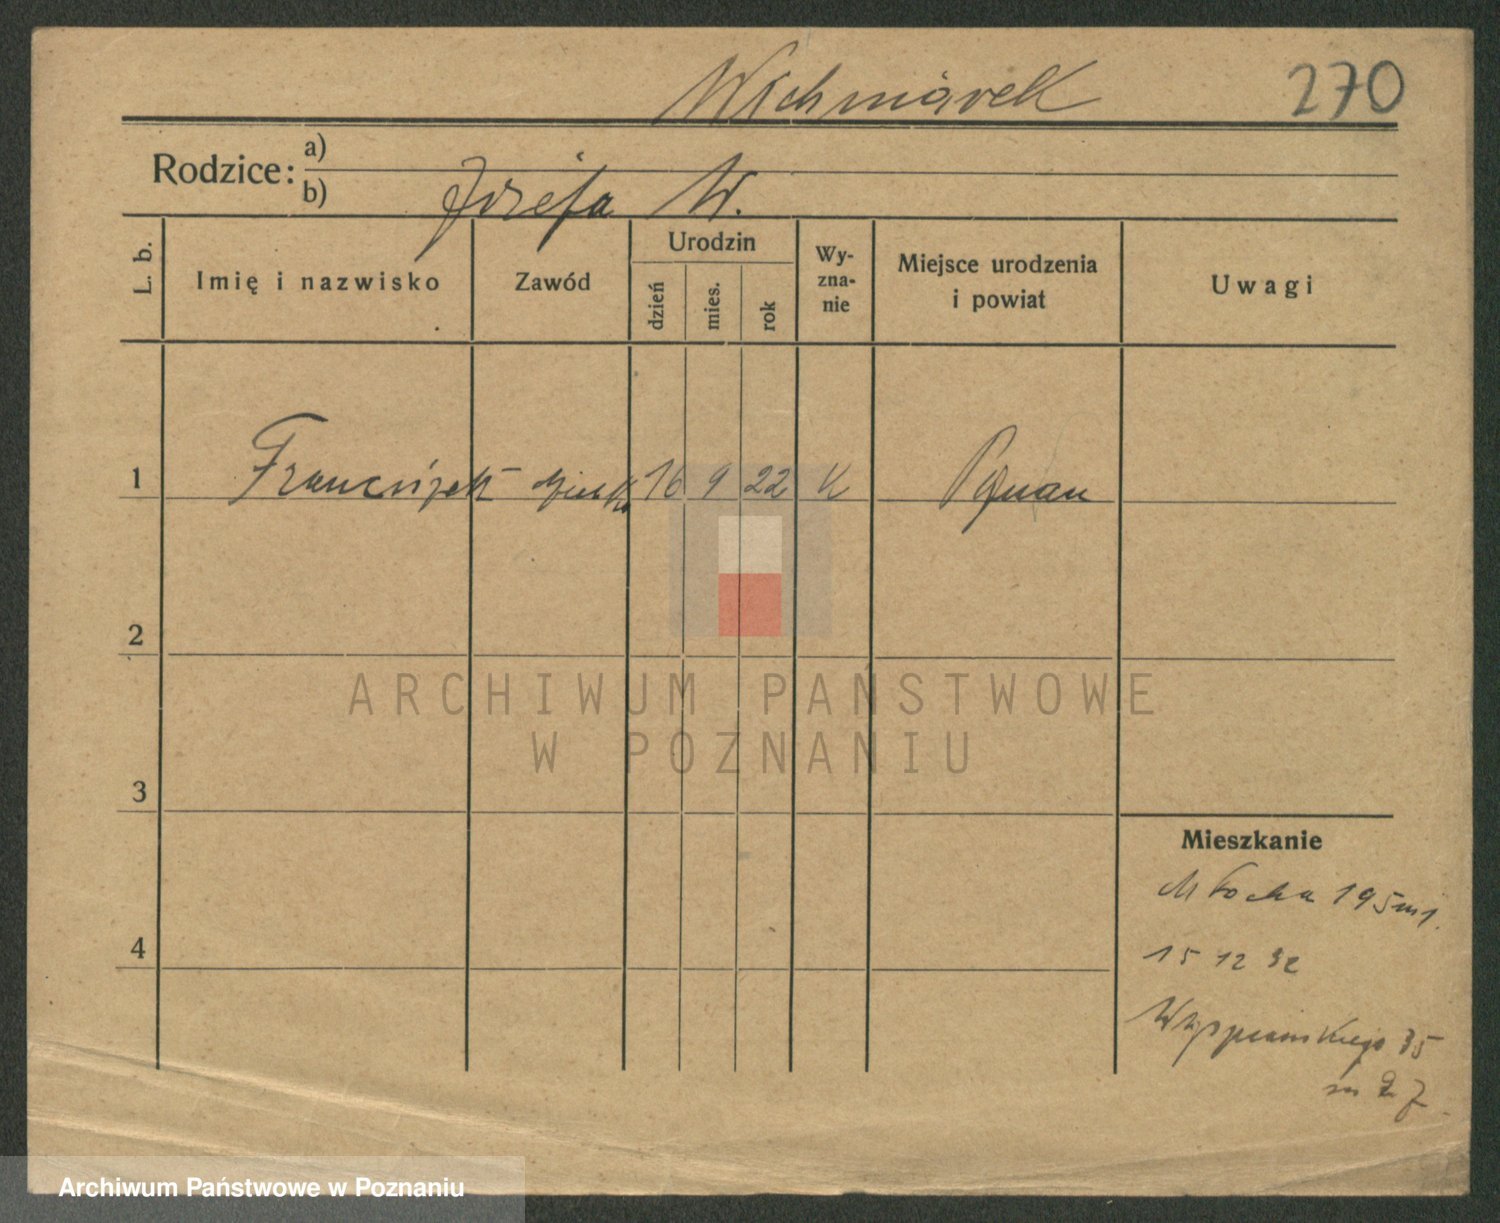 Wichmiarek 270
Rodzice: a)
b) Józefa W.
L. b. Imię i nazwisko Zawód Urodzin dzień mies. rok Wy-zna-nie Miejsce urodzenia i powiat Uwagi
1 Franciszek 16 9 22 K Poznań
2
ARCHIWUM PAŃSTWOWE
W POZNANIU
3
Mieszkanie
195 m 1.
4
15 12 32
Wyspiańskiego 35
m
Archiwum Państwowe w Poznaniu